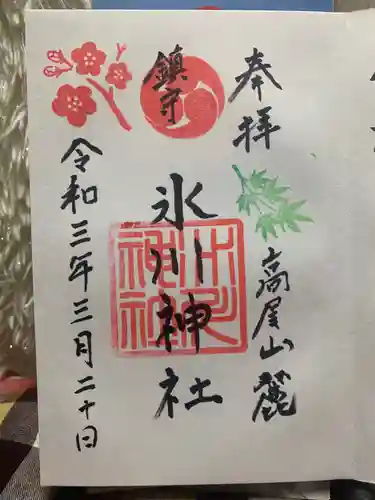 奉拝
高尾山麓
鎮守
氷川神社
氷川
神社
令和三年三月二十日